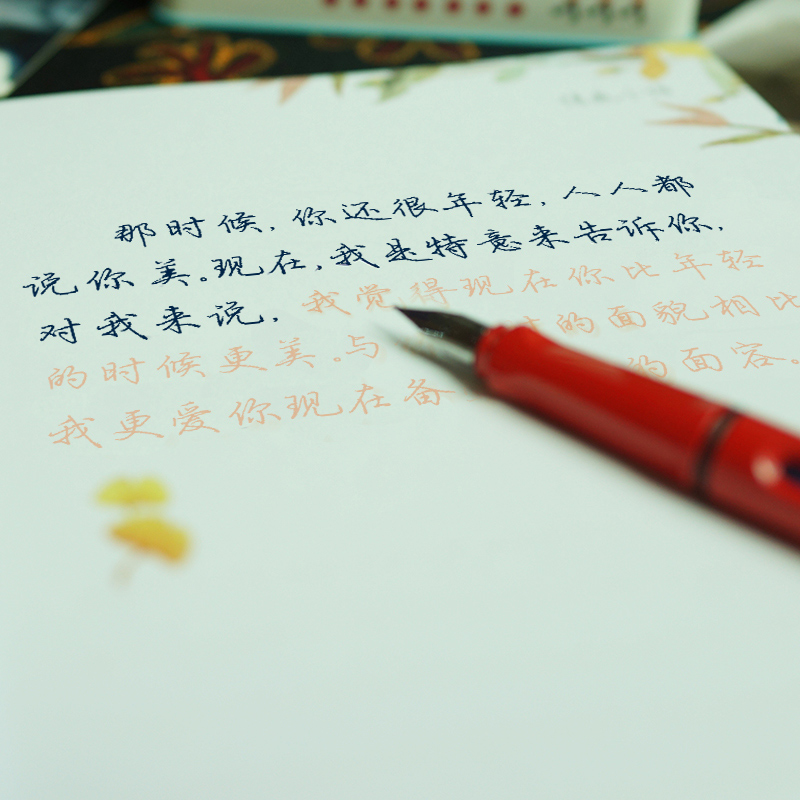 那时候，你还很年轻，人人都
说你美。现在，我是特意来告诉你，
对我来说，我觉得现在你比年轻
的时候更美。与的面貌相比
我更爱你现在备的面容。